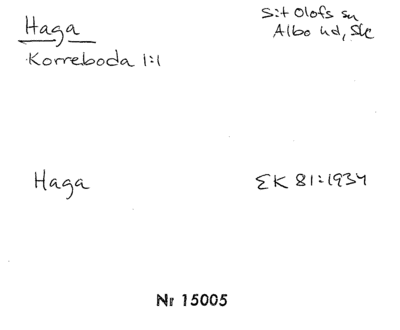 Haga
S:t Olofs sn
Albo hd, Sk
Korreboda 1:1
Haga
EK 81:1934
Nr 15005